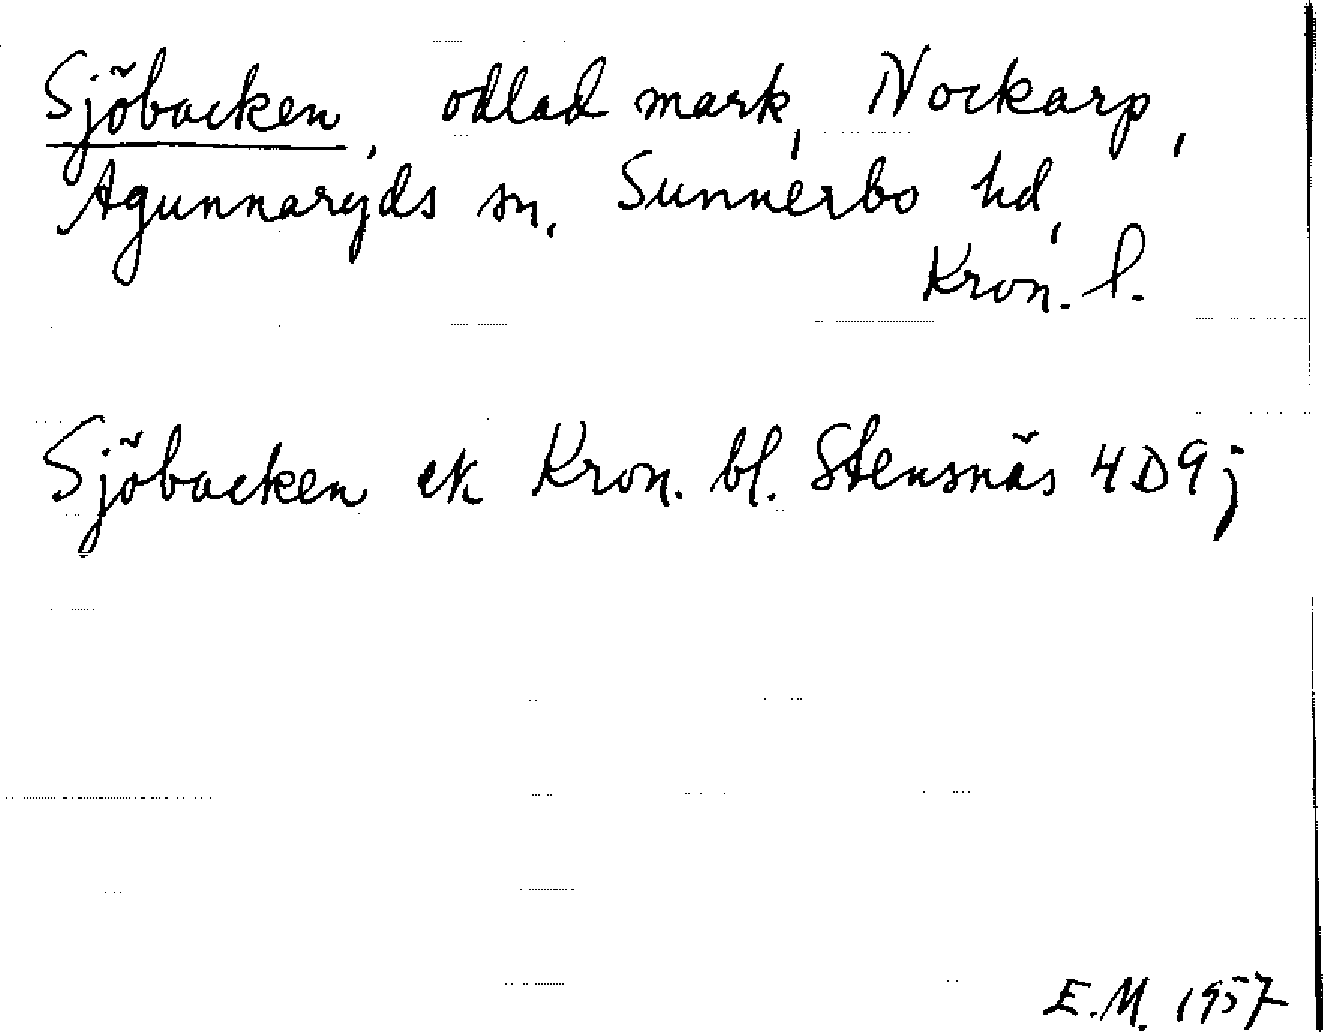 Sjöbacken, odlad mark, Nockarp,
Agunnaryds sn, Sunnerbo hd,
Kron. l.
Sjöbacken ek Kron. bl. Stensnäs 4D9j
E.M. 1957